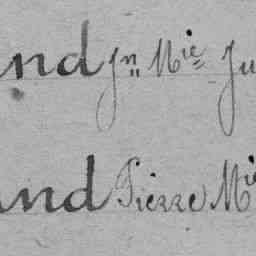 and Jn Mie Ju
and Pierre Mi